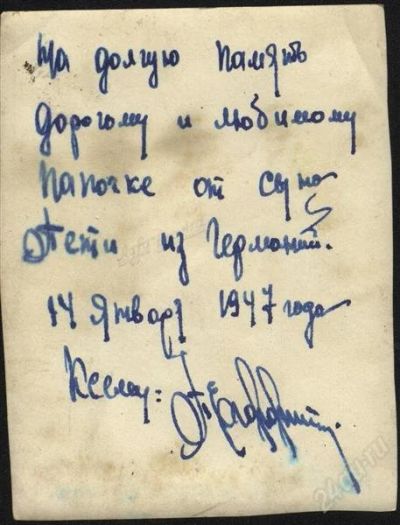 На долгую память
дорогому и любимому
папочке от сына
Пети из Германий.
14 января 1947 года
24.au.ru